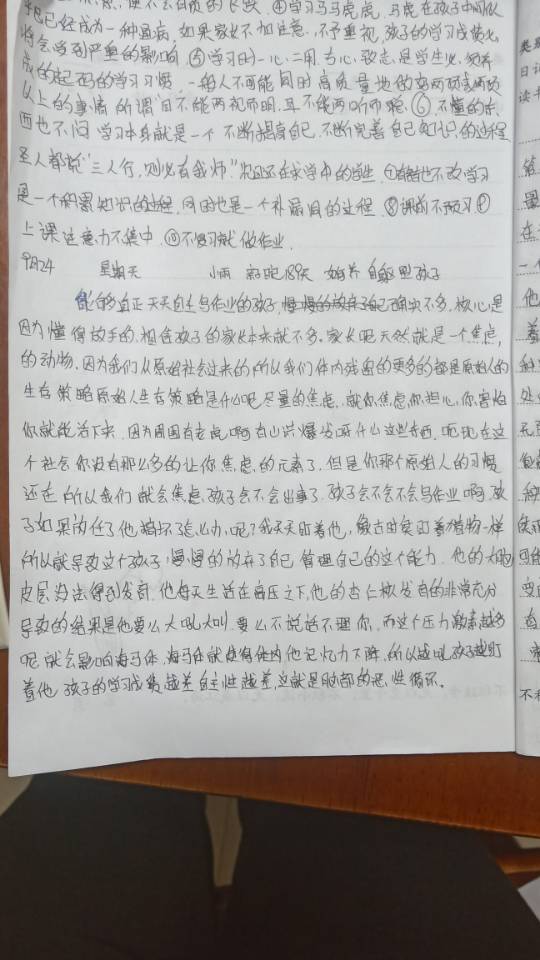 ④学习马马虎虎，马虎在孩子中间似
乎已经成为一种通病，如果家长不加注意，不予重视，孩子的学习成绩必
将会受到严重的影响 ⑤学习时一心二用，专心致志，是学生必须养
成的起码的学习习惯，一般人不可能同时高质量地做两项或两项
以上的事情 所谓目不能两视而明，耳不能两听而聪，⑥不懂的东
西也不问 学习本身就是一个不断提高自己，不断完善自己知识的过程
圣人都说"三人行，则必有我师"，况还在求学中的学生 ⑦有错也不改 学习
是一个积累知识的过程，同时也是一个补漏洞的过程 ⑧课前不预习 ⑨
上课注意力不集中 ⑩不复习就做作业
9月24 星期天 小雨 和跑189天 如何养自觉型孩子
能够真正天天自主写作业的孩子，确实不多，核心是
因为懂得放手的，相信孩子的家长本来就不多，家长呢天然就是一个焦虑，
的动物，因为我们从原始社会过来的所以我们体内残留的更多的都是原始人的
生存策略原始人生存策略是什么呢尽量的焦虑，就你焦虑你担心，你害怕
你就能活下来，因为周围有老虎啊有山洪爆发啊什么这些东西，呃现在这
个社会你没有那么多的让你焦虑的元素了，但是你那个原始人的习惯
还在 所以我们就会焦虑，孩子会不会出事了，孩子会不会不会写作业啊，孩
子如果放任了他搞坏了怎么办，呢？我天天盯着他，像古时候盯着猎物一样
所以就导致这个孩子，慢慢的放弃了自己管理自己的这个能力，他的大脑
皮层没法得到发育，他每天生活在高压之下，他的杏仁核发育的非常充分
导致的结果是他要么大吼大叫，要么不说话不理你，而这个压力激素越多
呢就会影响海马体，海马体就使得他记忆力下降，所以越吼孩子越盯
着他，孩子的学习成绩越差自主性越差，这就是脑部的恶性循环。